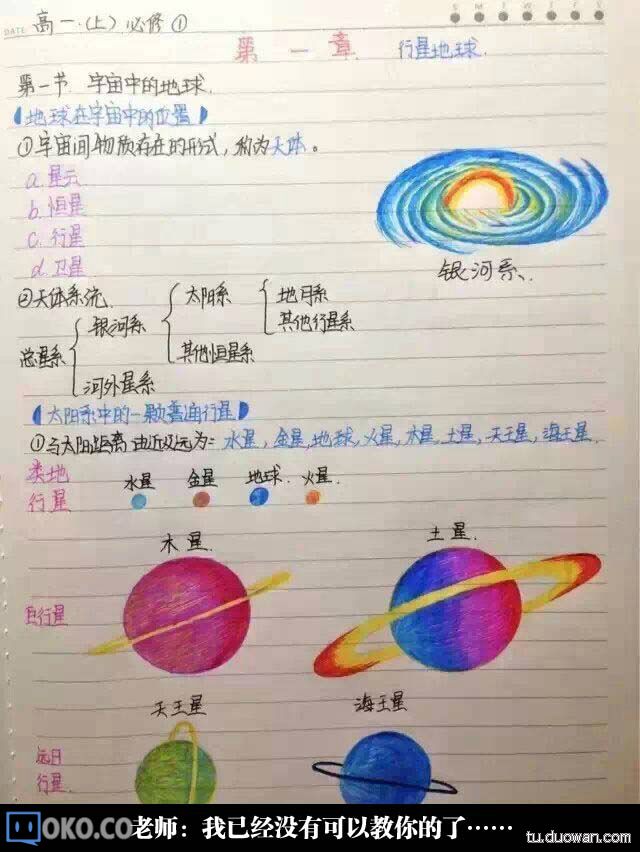 DATE 高一.(上) 必修①
S M T W T F S
第一章 行星地球.
第一节. 宇宙中的地球.
【地球在宇宙中的位置】
①宇宙间物质存在的形式，称为天体。
a. 星云
b. 恒星
c. 行星
d. 卫星
银河系.
②天体系统.
总星系 { 银河系 { 太阳系 { 地月系
其他行星系
其他恒星系
河外星系
【太阳系中的一颗普通行星】
①与太阳距离由近及远为: 水星, 金星, 地球, 火星, 木星, 土星, 天王星, 海王星.
类地行星
水星 金星 地球. 火星.
木星. 土星.
巨行星
天王星 海王星
远日行星
OKO.CO
老师：我已经没有可以教你的了……
tu.duowan.com